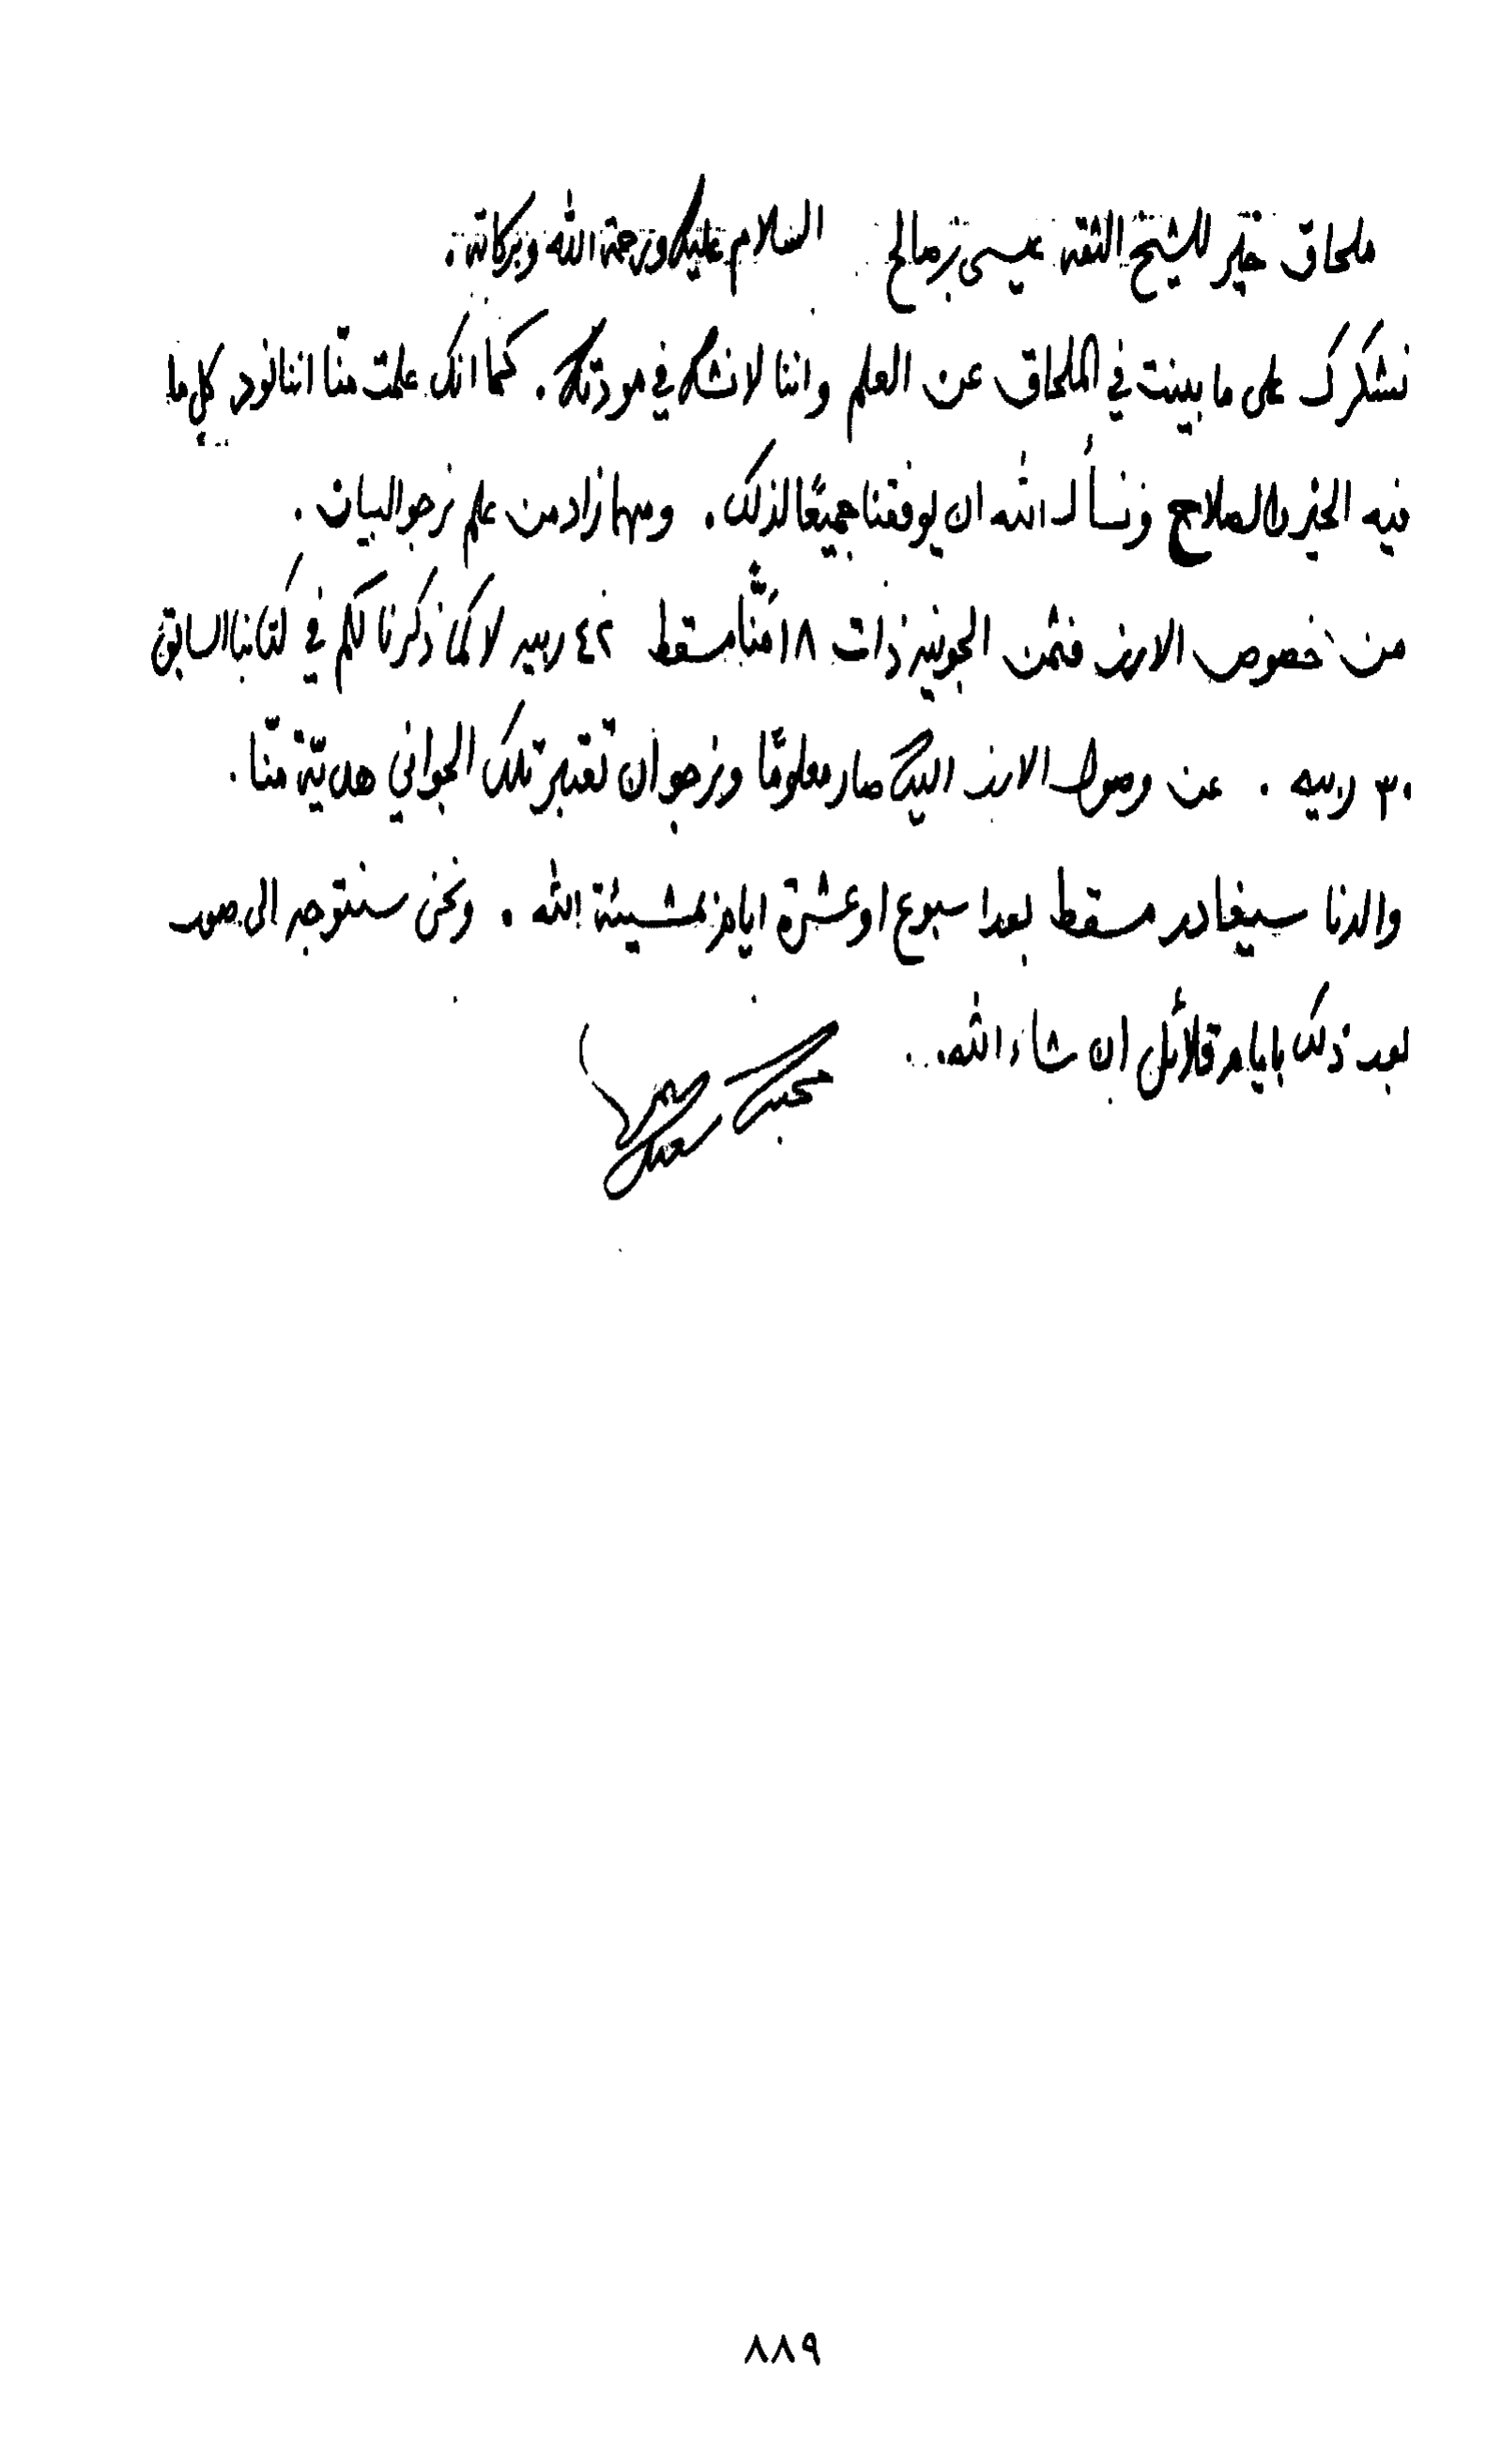 ملحاق خير للشيخ الثقه عيسى بن صالح السلام عليك ورحمة الله وبركاته.
نشكرك على ما بينت في الملحاق عن العلم واننا لا نشك في مودتك. كما انك علمت منّا اننا نود كل ما
فيه الخير والصلاح ونسأل الله ان يوفقنا جميعًا لذلك. ومهما زاد من علم نرجو البيان.
من خصوص الارز فثمن الجونيه ذات ١٨ منًّا مسقط ٤٢ ربيه لا كما ذكرنا لكم في كتابنا السابق
٣٠ ربيه. عن وصول الارز اليك صار معلومًا ونرجو ان تعتبر تلك الجواني هديّة منّا.
والدنا سيغادر مسقط بعد اسبوع او عشرة ايام بمشيئة الله. ونحن سنتوجه الى صور
بعد ذلك بايام قلائل ان شاء الله.
محبك
سعيد
٨٨٩